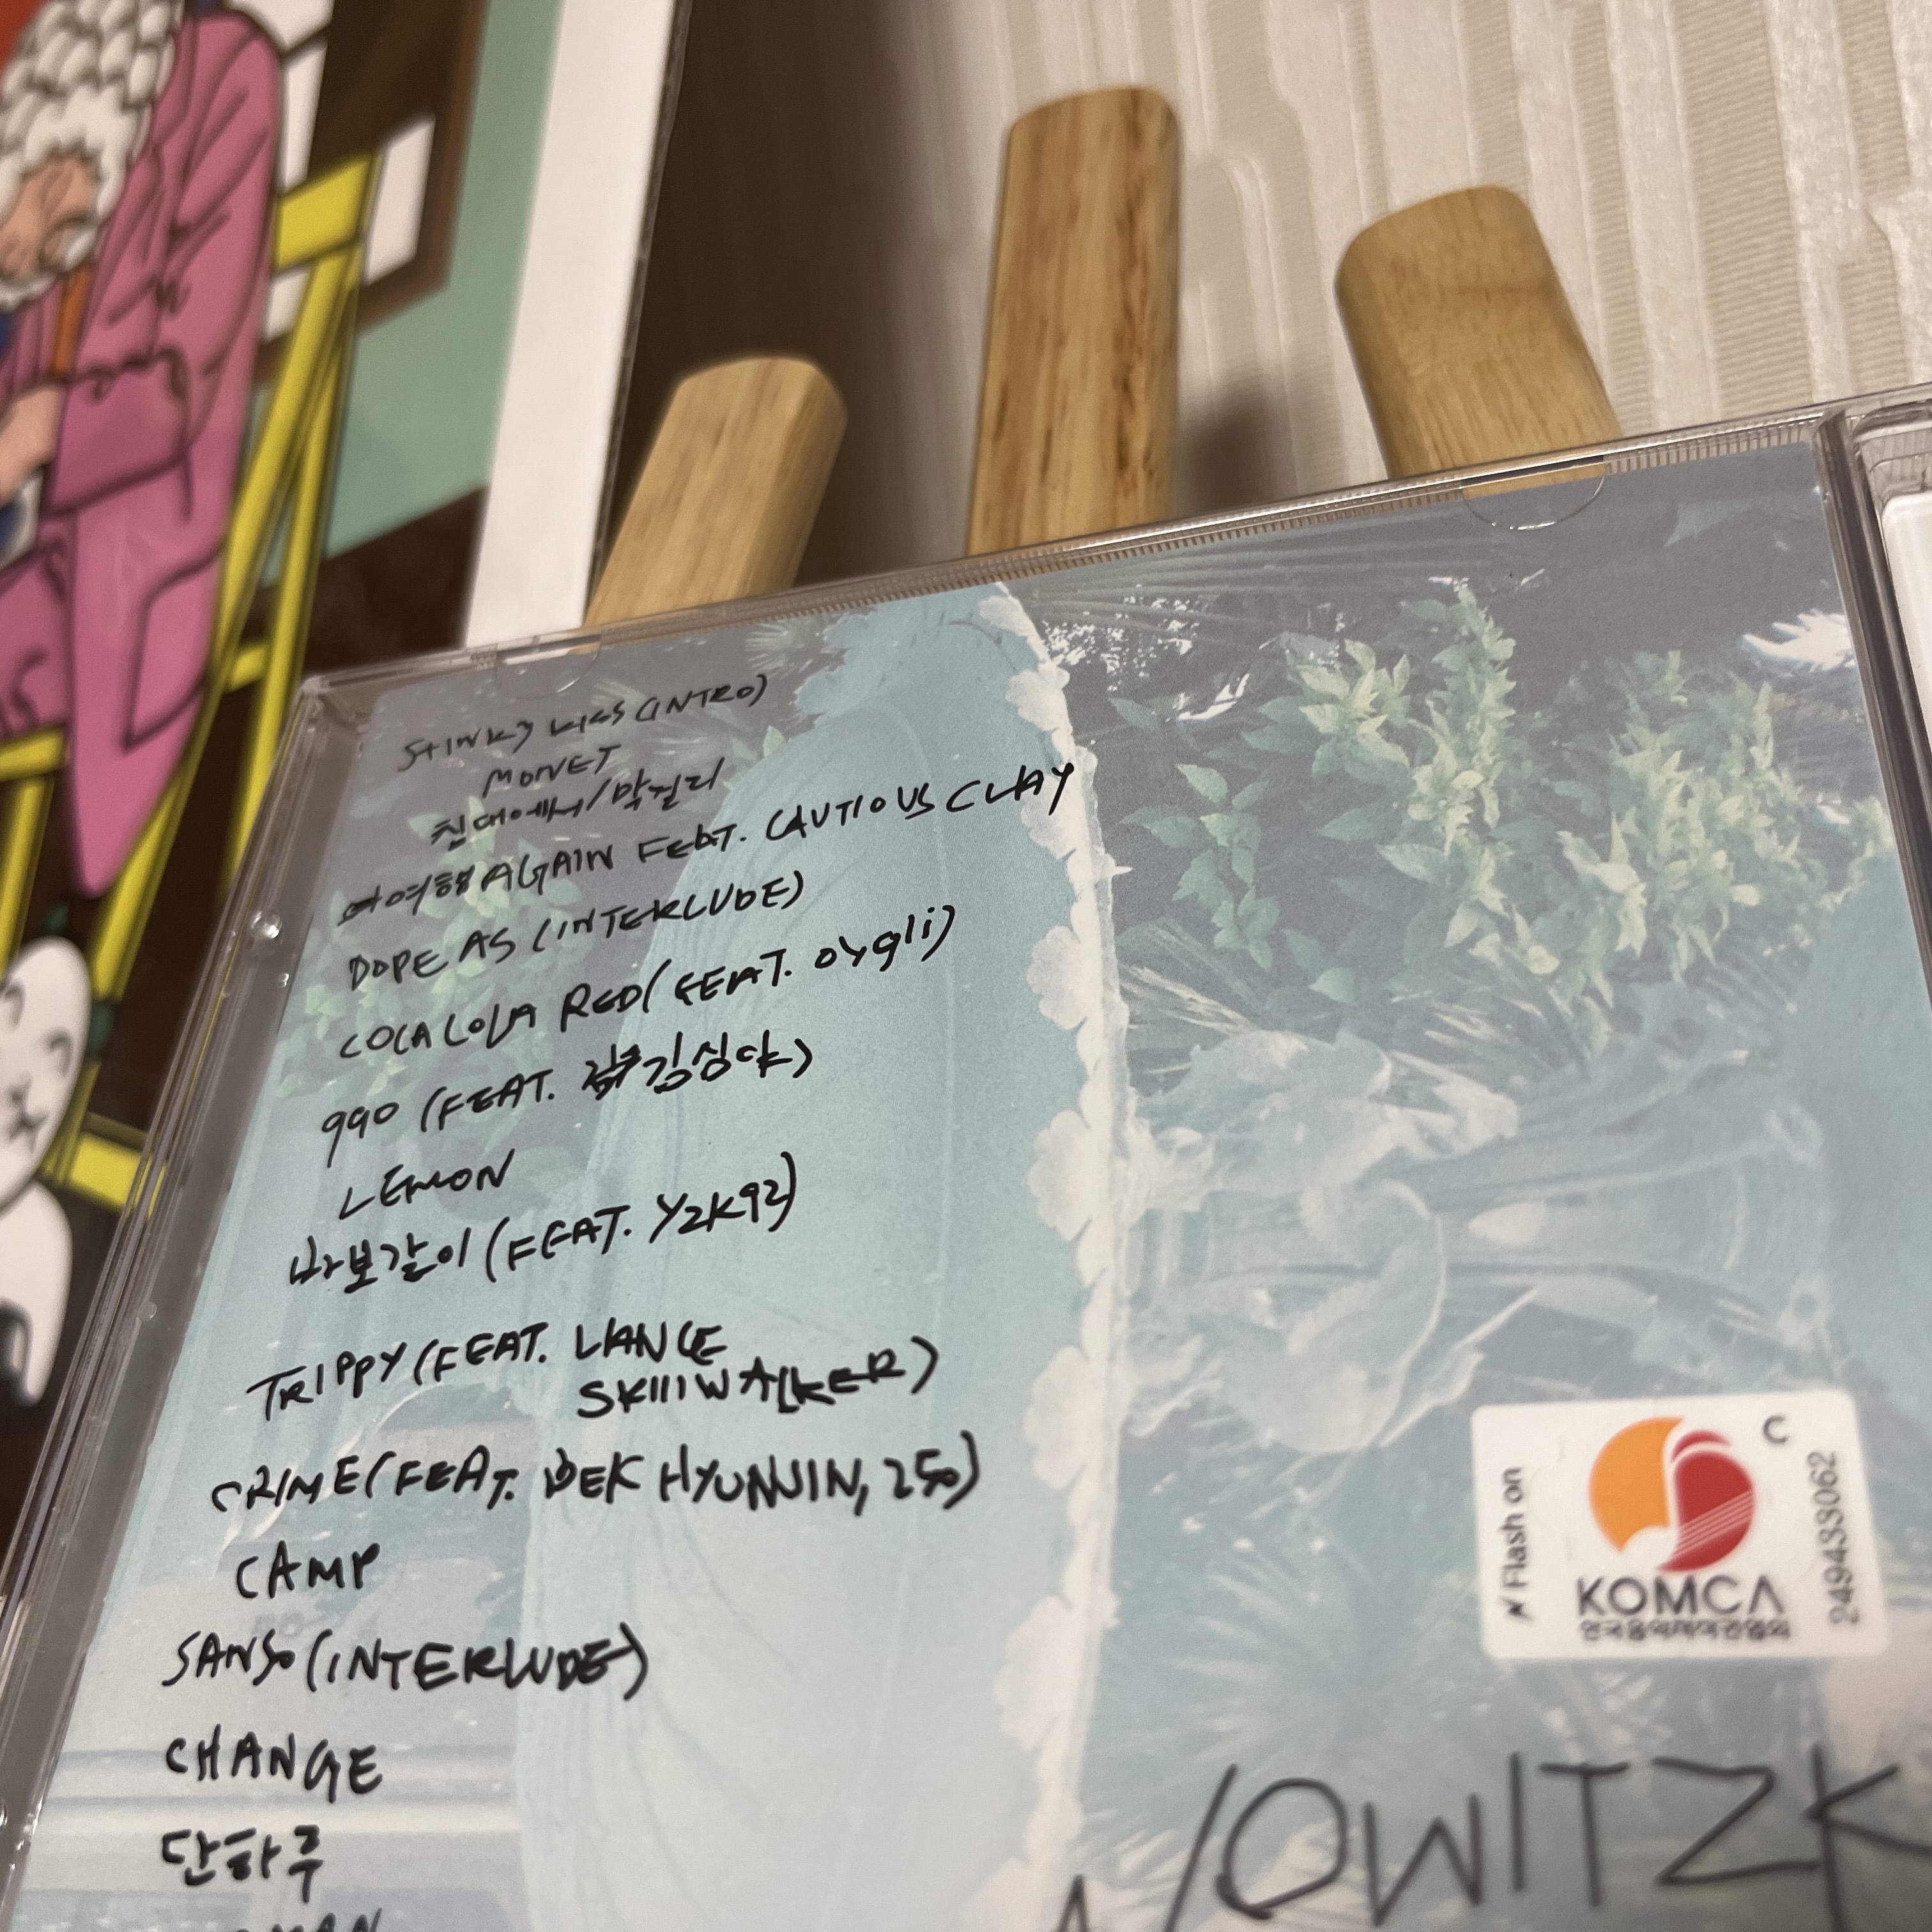 STINKY KISS (INTRO)
MONET
침대에서/막걸리
여행 AGAIN FEAT. CAUTIOUS CLAY
DOPE AS (INTERLUDE)
COCA COLA RED (FEAT. oygli)
990 (FEAT. 김심야)
LEMON
바보같이 (FEAT. Y2K92)
TRIPPY (FEAT. LANCE
SKIIIWALKER)
CRIME (FEAT. BEK HYUNJIN, 250)
CAMP
SANSO (INTERLUDE)
CHANGE
단하루
Flash on
C
KOMCA
한국음악저작권협회
249433062
NOWITZK